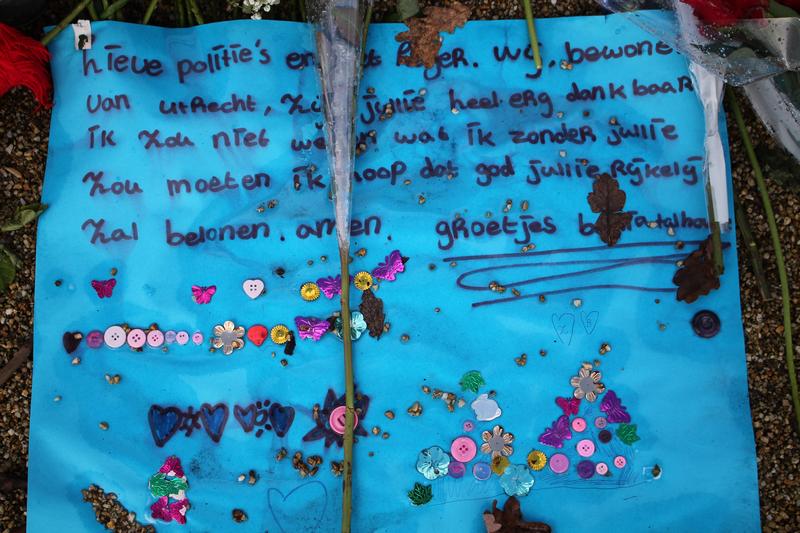 lieve politie's en wij, bewone
van utrecht, zijn jullie heel erg dankbaar
ik zou niet weten wat ik zonder jullie
zou moeten ik hoop dat god jullie Rijkelij
zal belonen. amen groetjes